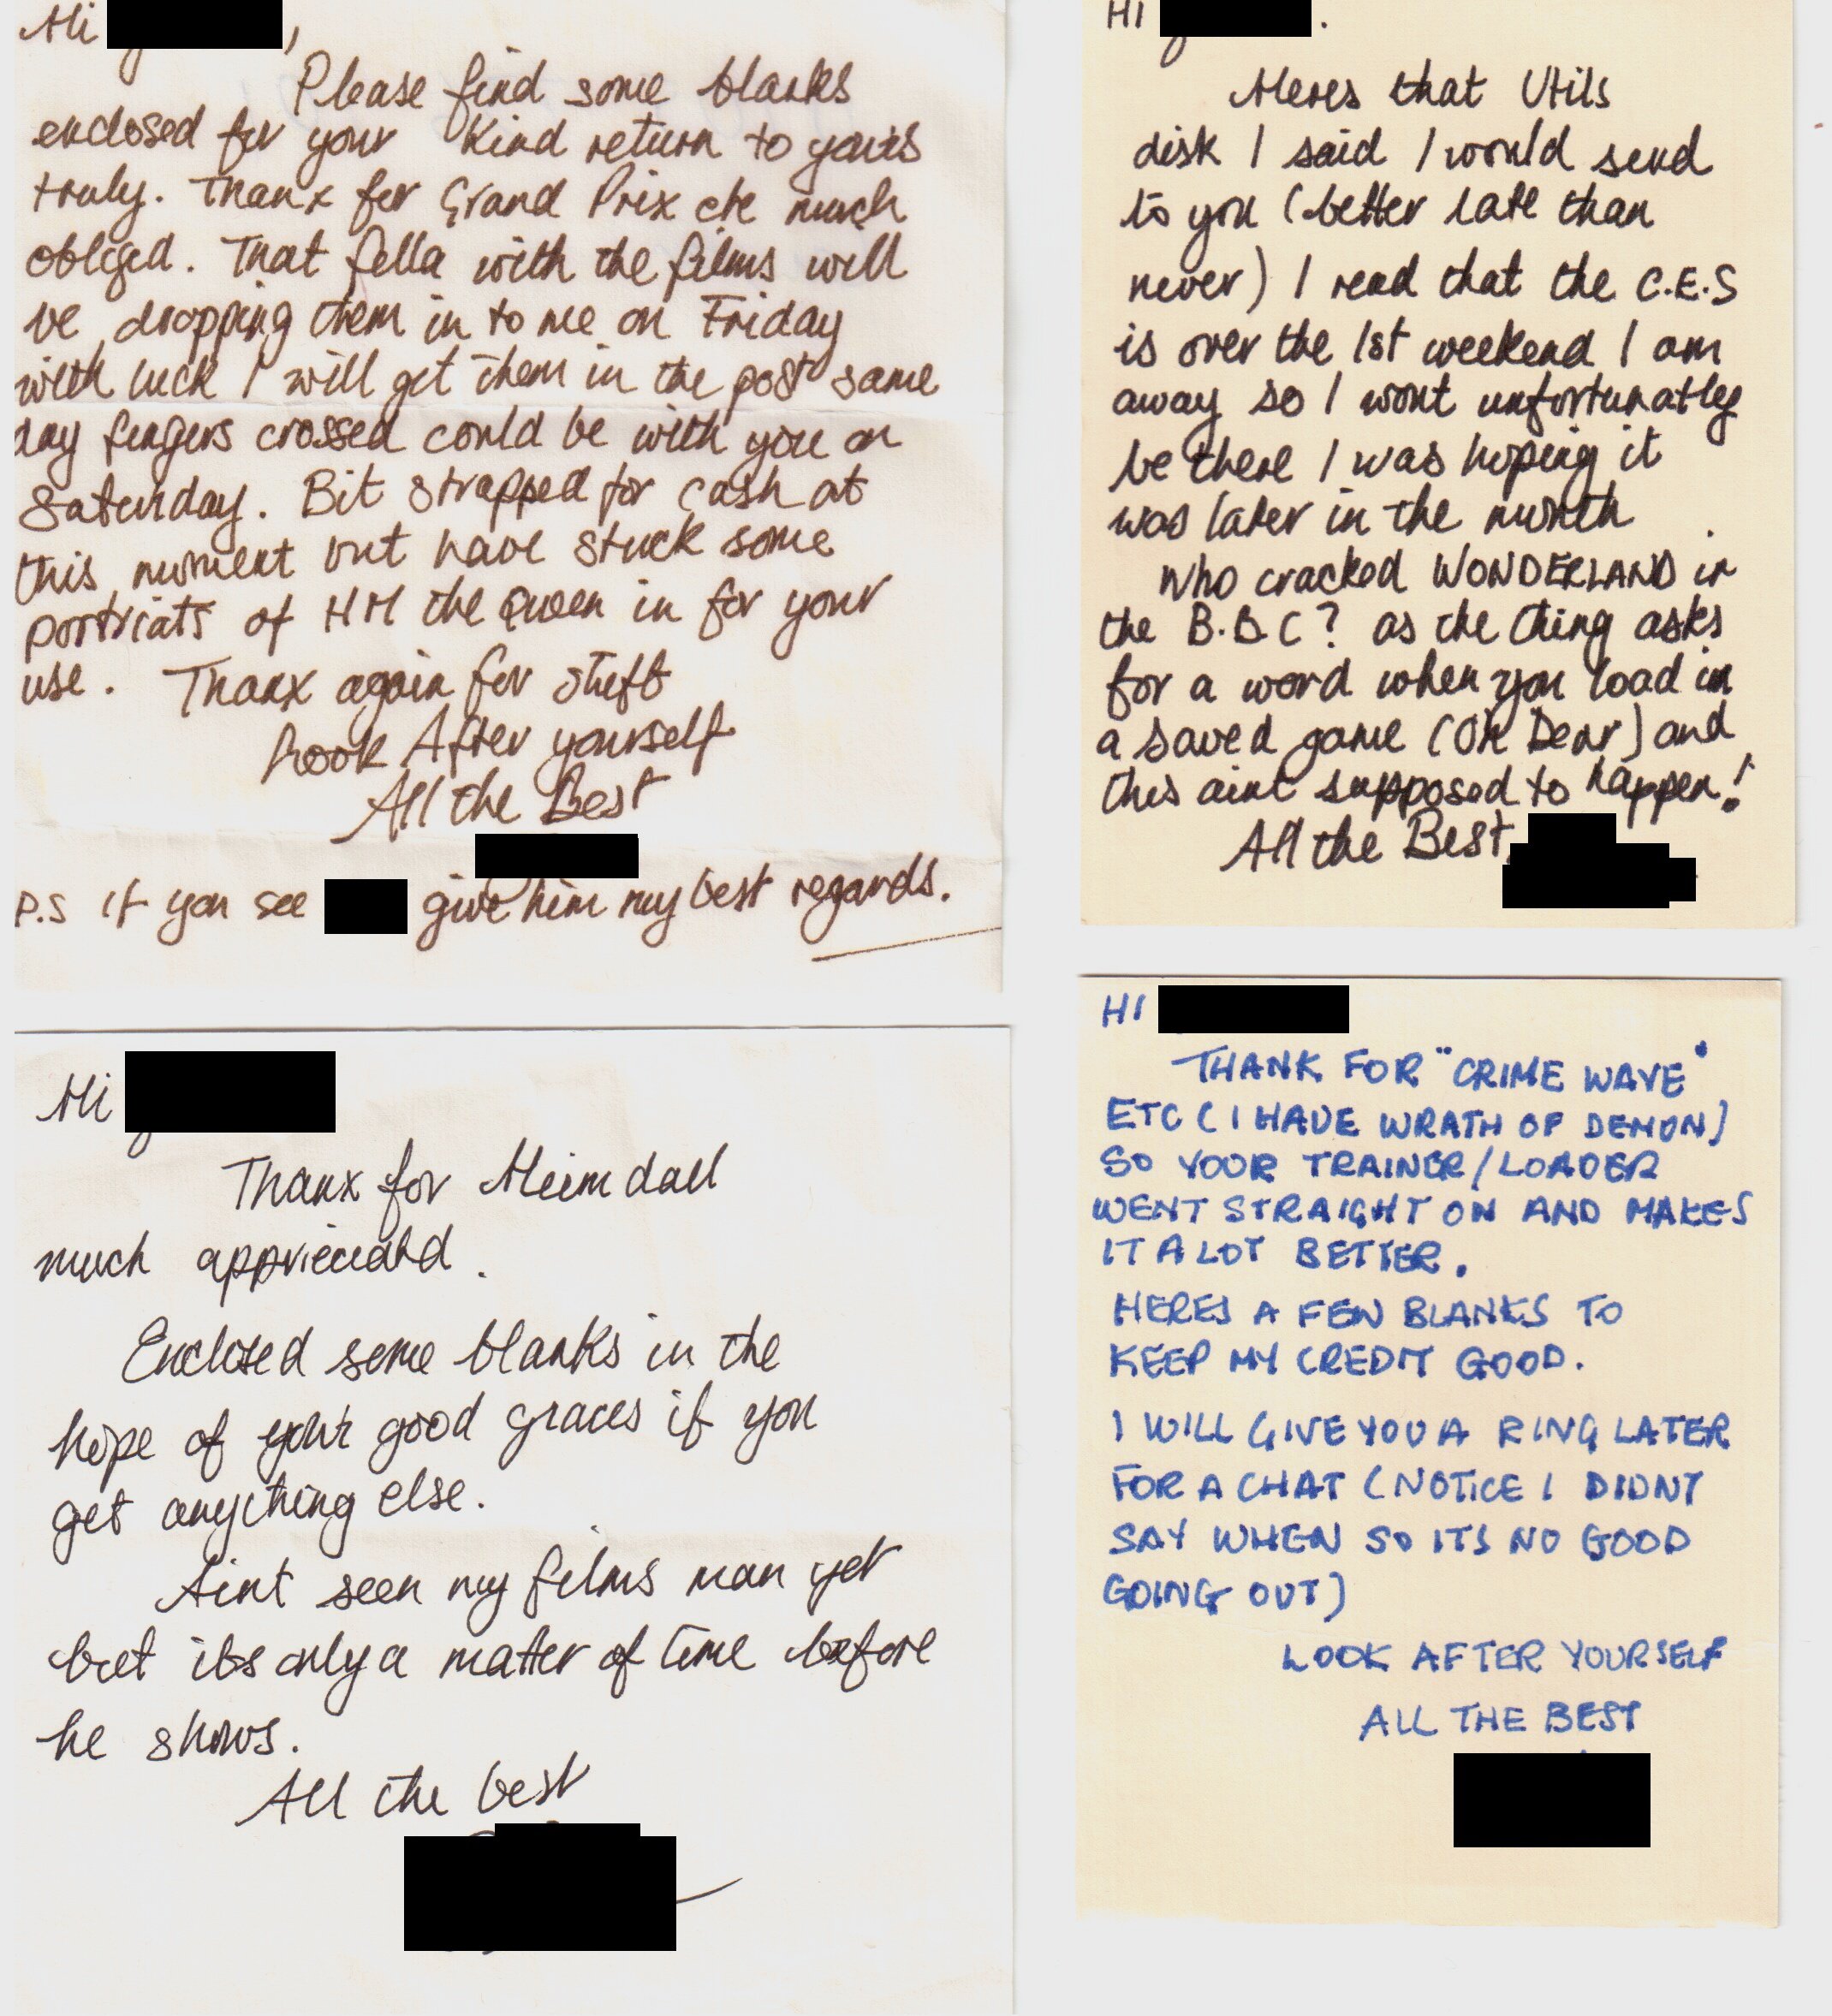 Hi ,
Please find some blanks
enclosed for your kind return to yours
truly. Thanx for Grand Prix etc much
obliged. That fella with the films will
be dropping them in to me on Friday
with luck I will get them in the post same
day fingers crossed could be with you on
Saturday. Bit strapped for cash at
this moment but have stuck some
portriats of HM the Queen in for your
use. Thanx again for stuff
Look After yourself
All the Best
P.S if you see give him my best regards.
Hi .
Heres that Utils
disk I said I would send
to you (better late than
never) I read that the C.E.S
is over the 1st weekend I am
away so I wont unfortunatley
be there I was hoping it
was later in the month .
Who cracked WONDERLAND in
the B.B.C? as the thing asks
for a word when you load in
a saved game (Oh Dear) and
this aint supposed to happen!
All the Best,
Hi
Thanx for Heimdall
much .
Enclosed some blanks in the
hope of your good graces if you
get anything else.
Aint seen my films man yet
but its only a matter of time before
he shows.
All the best
HI
THANK FOR "CRIME WAVE"
ETC (I HAVE WRATH OF DEMON)
SO YOUR TRAINER/LOADER
WENT STRAIGHT ON AND MAKES
IT A LOT BETTER.
HERES A FEW BLANKS TO
KEEP MY CREDIT GOOD.
I WILL GIVE YOU A RING LATER
FOR A CHAT (NOTICE I DIDNT
SAY WHEN SO ITS NO GOOD
GOING OUT)
LOOK AFTER YOURSELF
ALL THE BEST